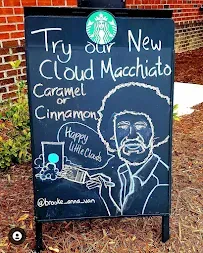 Try our New
Cloud Macchiato
Caramel
or
Cinnamon
Happy
Little Clouds
@brooke_anna_van